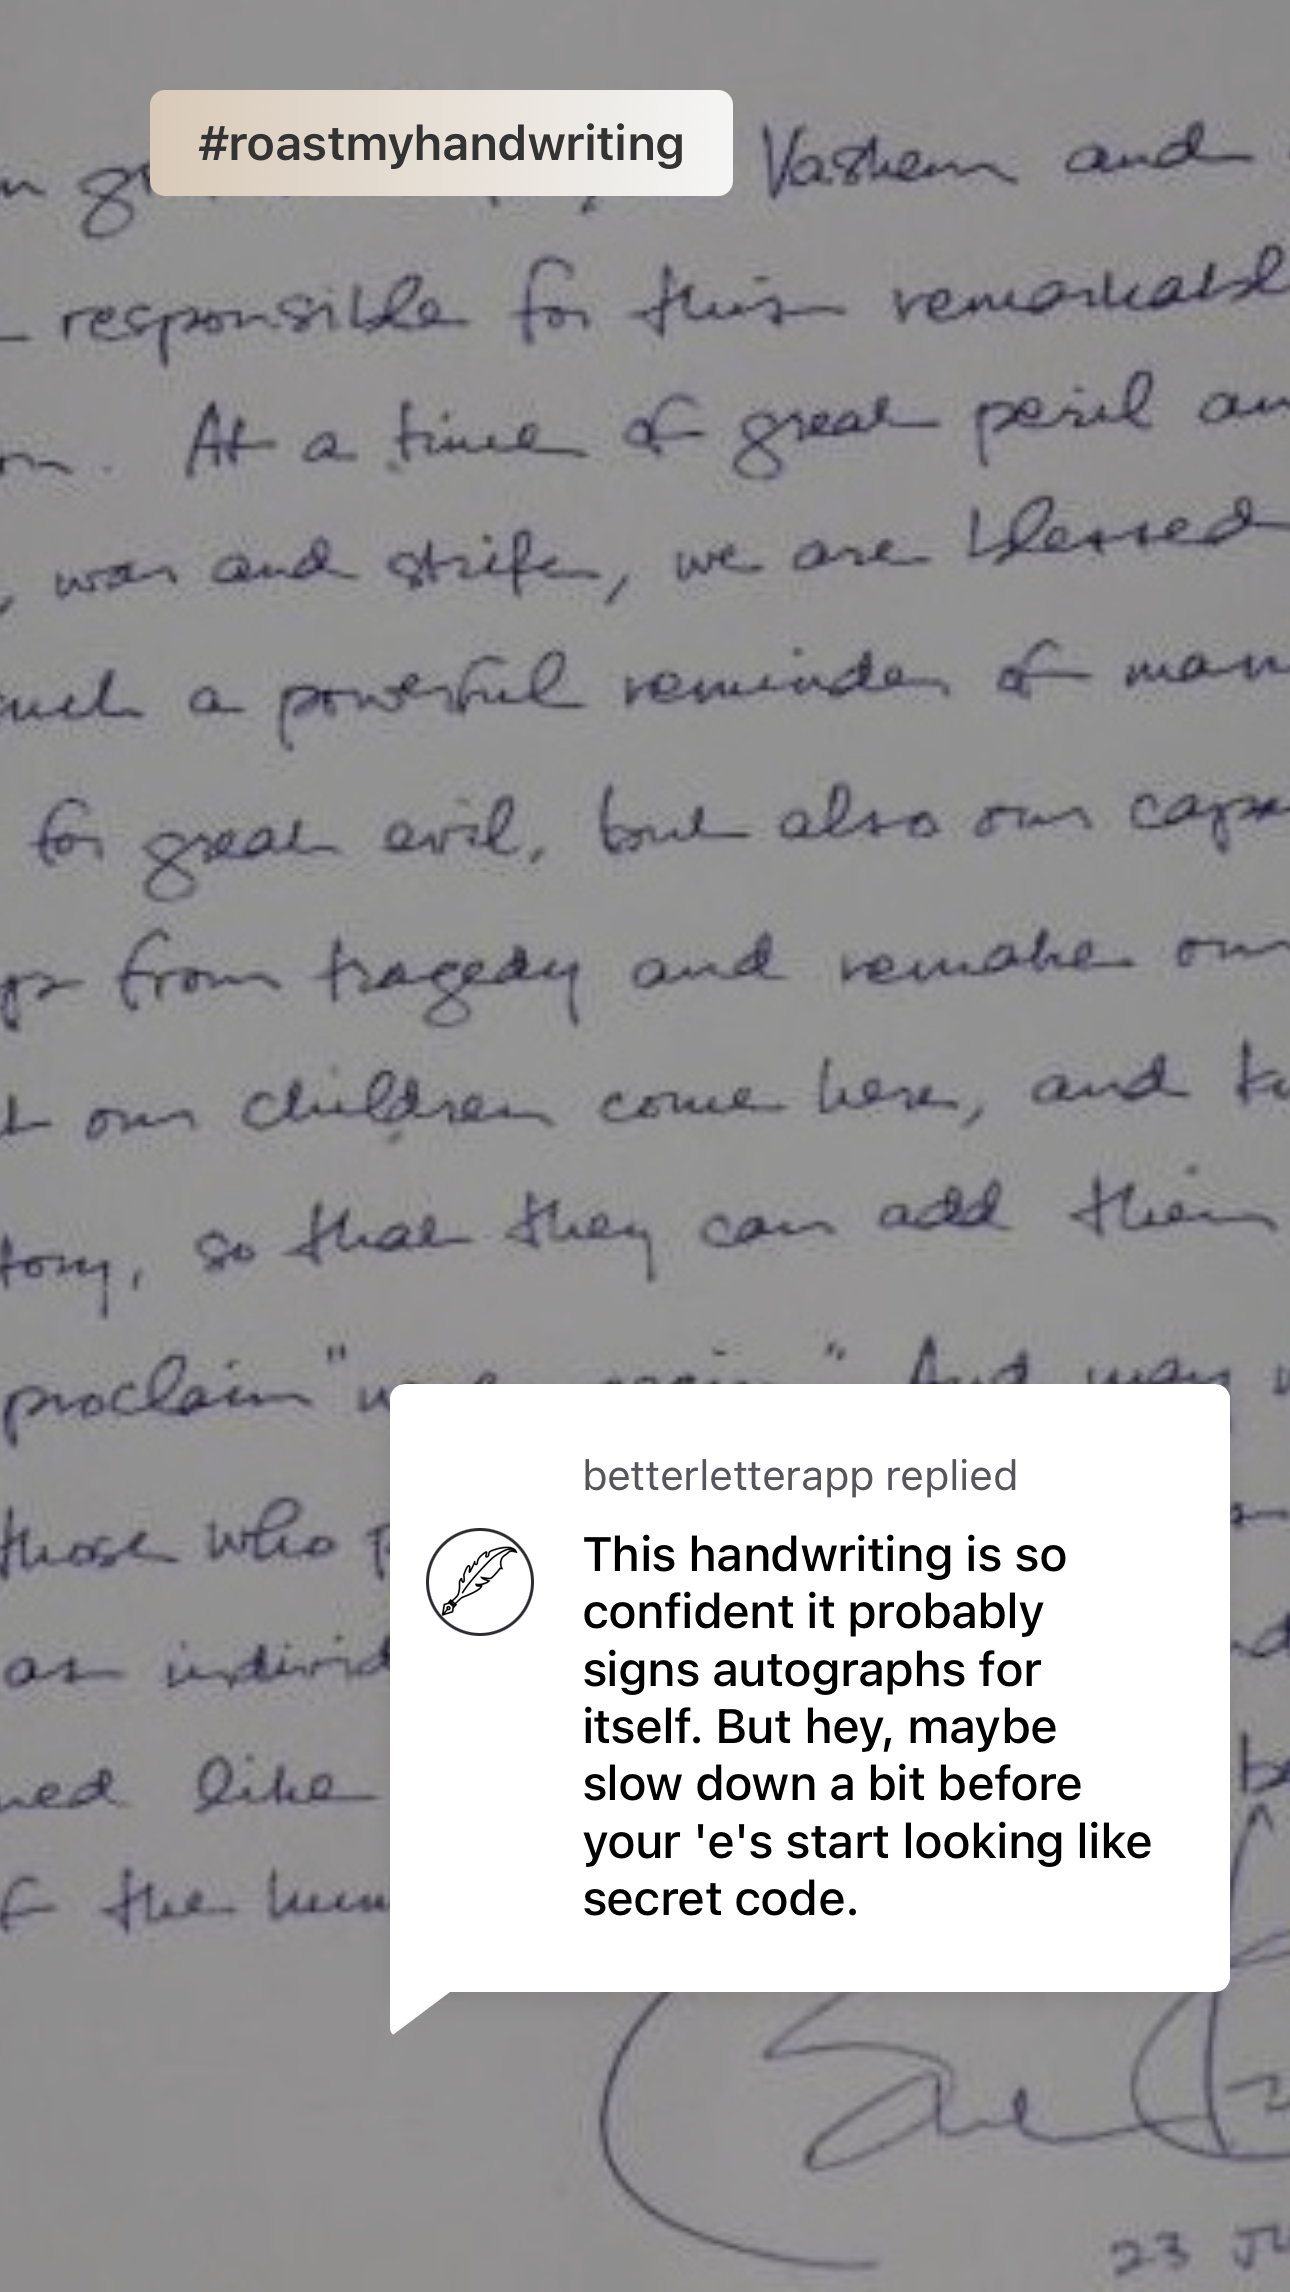 #roastmyhandwriting
Vashem and
responsible for this remarkabl
on. At a time of great peril an
, war and strife, we are blessed
such a powerful reminder of man
for great evil, but also our capa
ps from tragedy and remake our
t our children come here, and kn
tory, so that they can add their
proclaim " " And may
those who
as individ
ned like
f the hum
betterletterapp replied
This handwriting is so
confident it probably
signs autographs for
itself. But hey, maybe
slow down a bit before
your 'e's start looking like
secret code.
23 JU